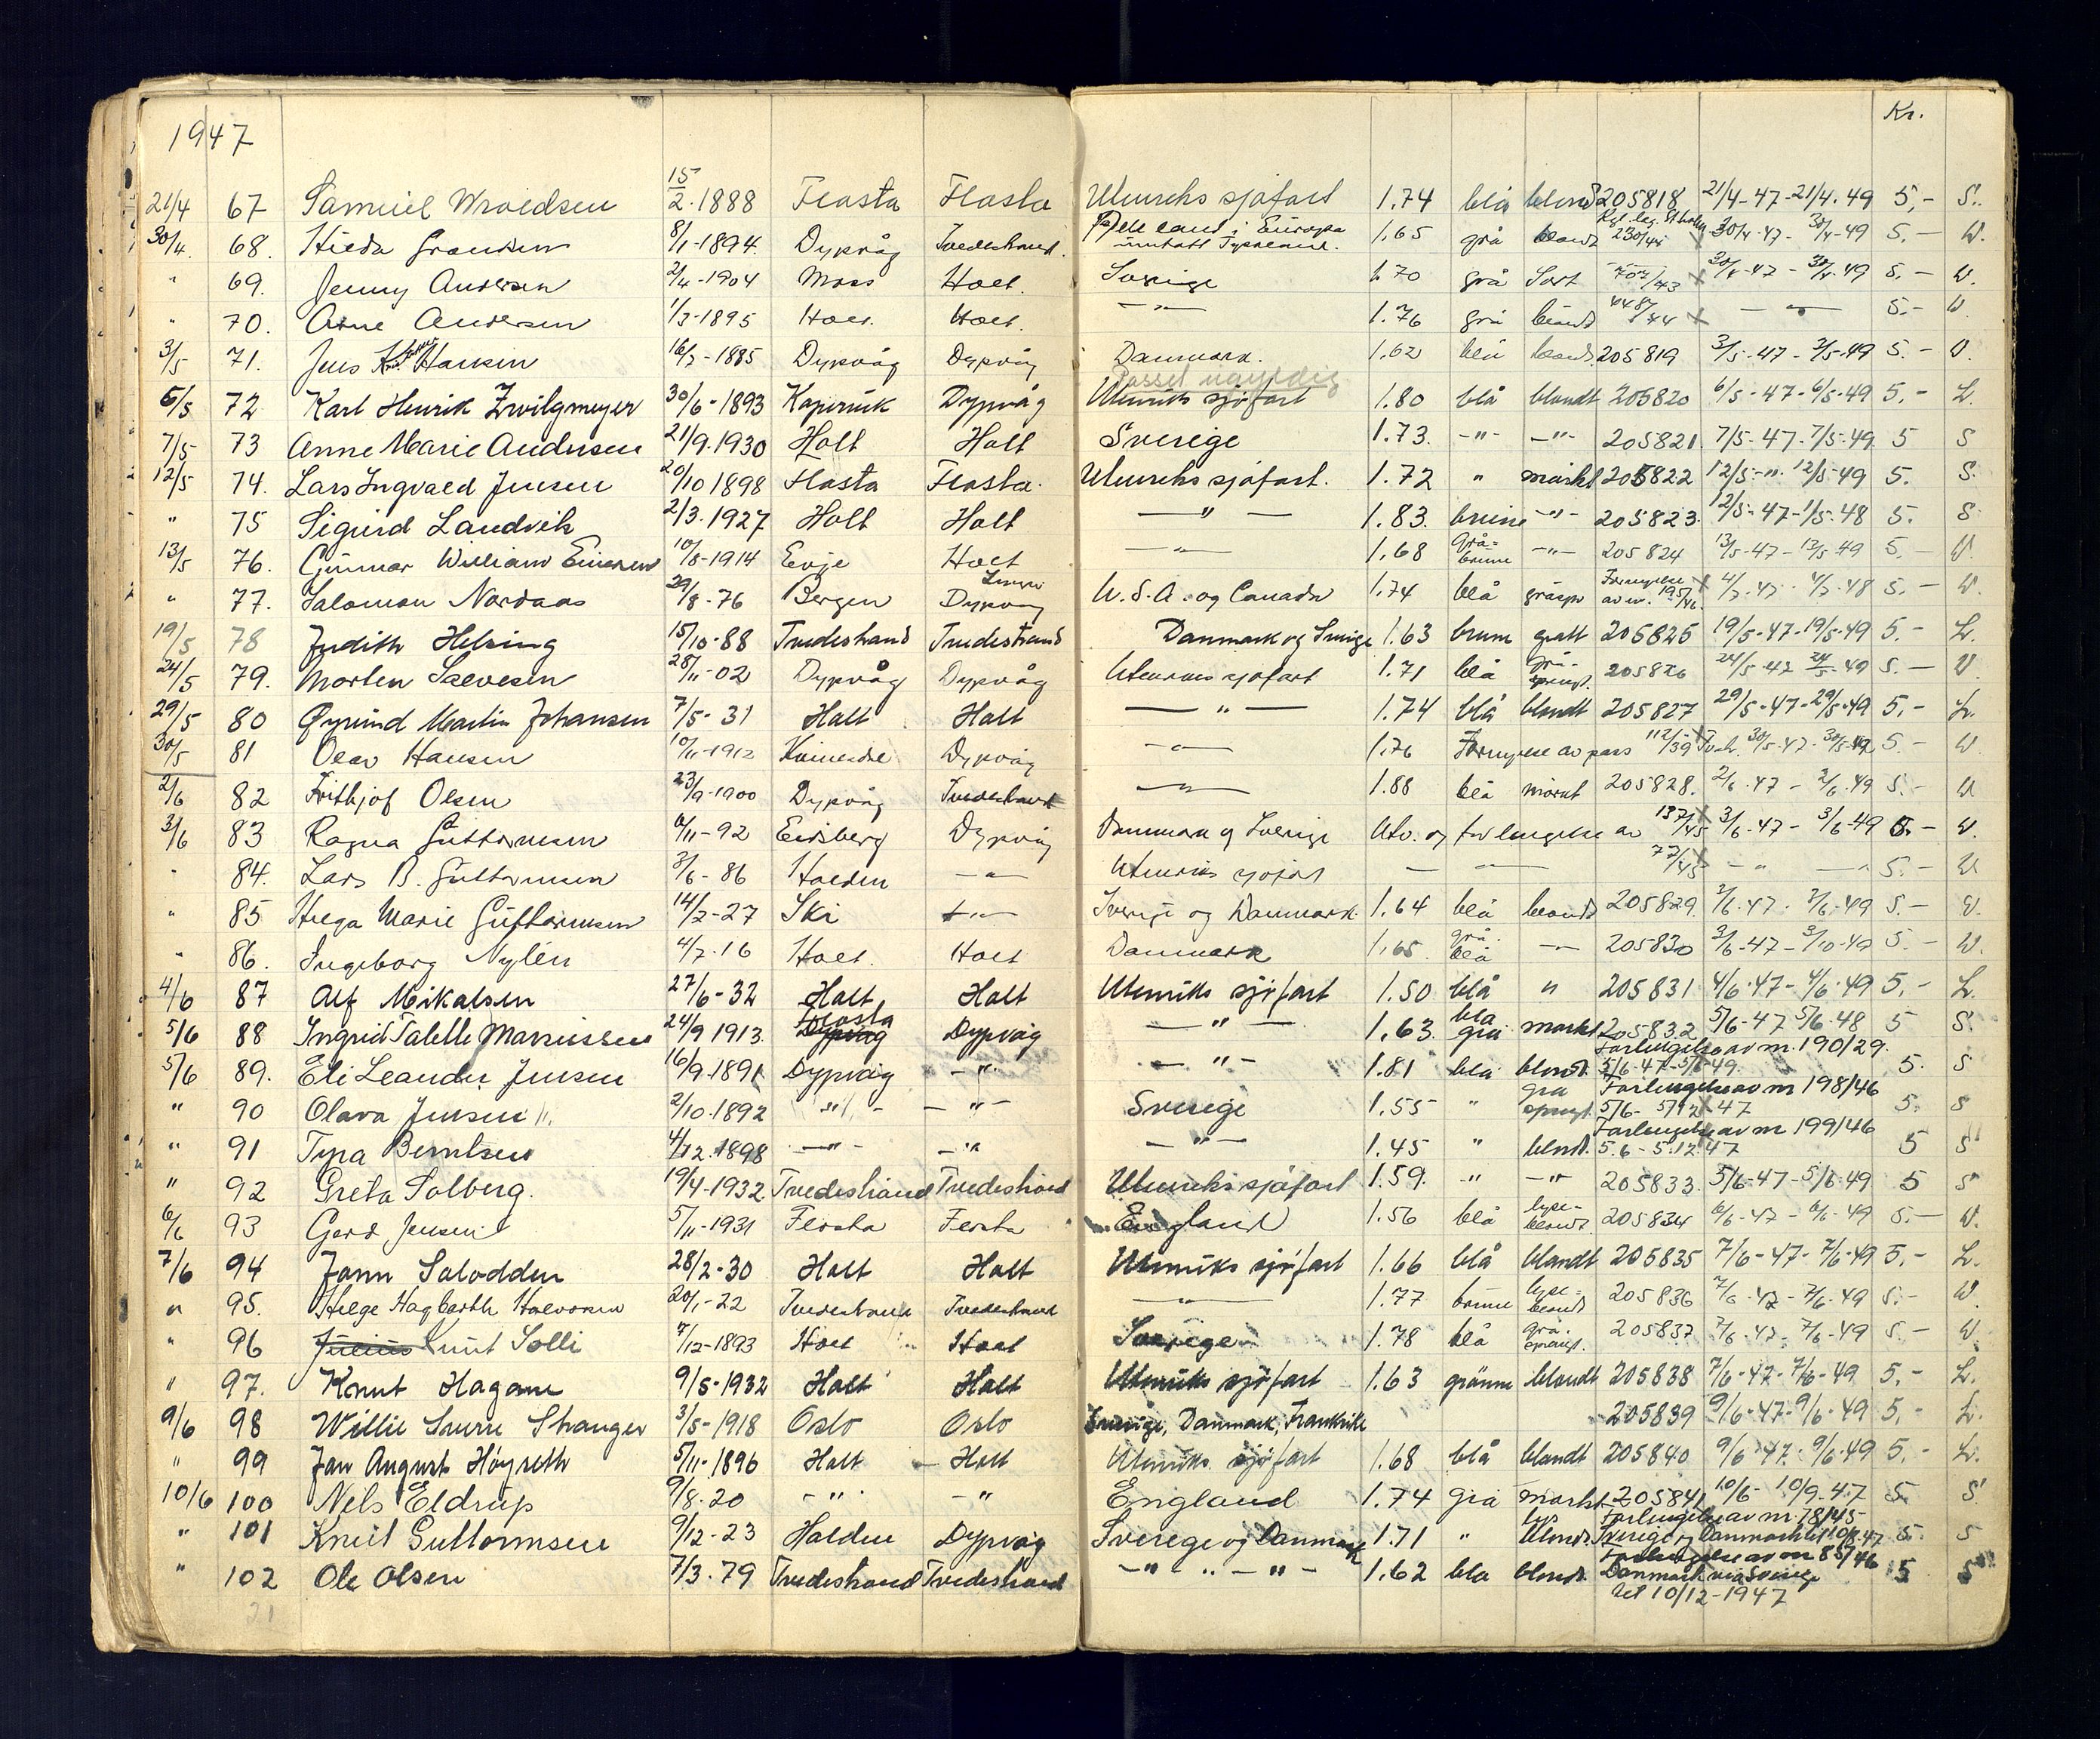 1947 Kr.
21/4 67 Samuel Wroldsen 15/2.1888 Flosta Flosta Utenriks sjøfart 1.74 blå blond 205818 21/4-47-21/4.49 5,- S.
30/4. 68. Hilda 8/1-1894. Dypvåg Tvedestrand. Alle land i Europa unntatt Tyskland. 1.65 grå blond 230/44 30/4-47- 30/4-49 5.- W.
" 69. Jenny Andersen 2/4-1904 Moss Holt. Sverige 1.70 grå Sort /43 x 30/4-47 - 30/4-49 5.- W.
" 70. Arne Andersen 1/3-1895 Holt. Holt. -"- 1.76 grå blond 448/44 x - " - 5.- W
3/5 71. Jens Hansen 16/7-1885 Dypvåg Dypvåg Danmark. 1.62 blå blond. 205819 3/5-47-3/5-49 5.- W.
Passet ugyldig
6/5 72 Karl Henrik Zwilgmeyer 30/6-1893 Kopervik Dypvåg Utenriks sjøfart 1.80 blå blondt 205820 6/5-47-6/5-49 5,- L.
7/5- 73 Anne Marie Andersen 21/9.1930 Holt Holt Sverige 1.73. -"- -"- 205821. 7/5-47.-7/5-49 5 S
12/5 74. Lars Ingvald Jensen 20/10 1898 Flosta Flosta. Utenriks sjøfart. 1.72 " mørkt 205822 12/5-"- 12/5-49 5. S.
" 75 Sigurd Landvik 2/3.1927 Holt Holt - " - 1.83. brune -"- 205823. 12/5-47-1/5-48 5. S
13/5 76. Gunnar William Einersen 10/8-1914 Evje Holt -"- 1.68 grå-brune -"- 205824 13/5-47-13/5-49 5.- W.
" 77. Salomon Nordaas 29/8-76 Bergen Dypvåg U.S.A. og Canada 1.74 blå gråspr Fornyelse av nr. 195/46. x 4/7-47- 4/7-48 5.- W.
19/5 78 Judith Helsing 15/10-88 Tvedestrand Tvedestrand Danmark og Sverige 1.63 brune grått 205825 19/5-47-19/5-49 5.- L.
24/5 79. Morten Salvesen 28/11-02 Dypvåg Dypvåg Utenriks sjøfart 1.71 blå grå-sprengt. 205826 24/5-47 24/5-49 5.- W
29/5 80 Øyvind Martin Johansen 7/5-31 Holt Holt - " - 1.74 blå blondt 205827 29/5-47-29/5-49 5,- L.
30/5 81 Olav Hansen 10/11-1912 Kvinesdal Dypvåg -"- 1.76 Fornyelse av pass 112/39 30/5-47-30/5-49 5.- W
2/6 82 Frithjof Olsen 23/9-1900 Dypvåg Tvedestrand -"- 1.88 blå mørkt 205828. 2/6-47 - 2/6-49 5.- W
3/6 83 Ragna Guttormsen 6/11-92 Eidsberg Dypvåg Danmark og Sverige Utv. og forlengelse av 187/45 x 3/6-47- 3/6-49 5.- W.
" 84. Lars B. Guttormsen 3/6-86 Halden -"- Utenriks sjøfart - -"- 77/45 x - " - 5.- W
" 85 Helga Marie Guttormsen 14/2-27 Ski -"- Sverige og Danmark. 1.64 blå blond 205829. 3/6-47- 3/6-49 5.- W.
" 86. Ingeborg Nylén 4/7-16 Holt. Holt Danmark 1.65 grå-blå -"- 205830 3/6-47-3/10-49 5.- W.
4/6 87 Alf Mikalsen 27/6-32 Holt Holt Utenriks sjøfart 1.50 blå " 205831 4/6-47-4/6-49 5,- L.
5/6 88 Ingrid Tabelle Mariussen 24/9 1913. Flosta Dypvåg Dypvåg - " - 1.63. blå grå mørkt 205832 5/6-47 5/6-48 5 S.
5/6 89. Eli Leander Jensen 16/9.1891 Dypvåg -"- - " - 1.81 blå blond. Forlengelse av nr. 190/29. 5/6-47-5/6-49. 5. S
" 90 Olava Jensen 2/10.1892 -"- -"- Sverige 1.55 " grå sprengt. Forlengelse av nr 198/46 5/6- 5/12 47 5. S
" 91 Tyra Berntsen 4/12.1898 -"- -"- - " - 1.45 " blond. Forlengelse av nr 199/46 5.6-5.12.47 5 S
" 92 Greta Solberg. 19/4-1932. Tvedestrand Tvedestrand Utenriks sjøfart 1.59. " -"- 205833. 5/6-47-5/6-49 5 S
6/6 93 Gerd Jensen 5/11-1931 Flosta Flosta England 1.56 blå lyse-blond 205834 6/6-47 - 6/6-49 5.- W.
7/6 94 Jann Solodden 28/2-30 Holt Holt Utenriks sjøfart 1.66 blå blondt 205835 7/6-47-7/6-49 5,- L.
" 95. Helge Hagbarth Halvorsen 20/1-22 Tvedestrand Tvedestrand -"- 1.77 brune lyse-blond 205836 7/6-47-7/6-49 5.- W.
" 96 Julius Knut Solli 7/12-1893 Holt Holt Sverige 1.78 blå grå-sprengt. 205837 7/6-47-7/6-49 5.- W
" 97. Knut Hagane 9/5-1932 Holt Holt Utenriks sjøfart 1.63 grønne blondt 205838 7/6-47-7/6-49 5,- L.
9/6 98 Willie Snorre Stranger 3/5-1918 Oslo Oslo Sverige, Danmark, Frankrike 205839 9/6-47-9/6-49 5,- L.
" 99 Jan August Høgseth 5/11-1896 Holt Holt Utenriks sjøfart 1.68 blå blondt 205840 9/6-47-9/6-49 5,- L.
10/6 100 Nels Eldrup 9/8.20 -"- -" England 1.74 grå mørkt 205841 10/6- 10/9-47 5 S
" 101 Knut Guttormsen 9/12-23 Halden Dypvåg Sverege og Danmark 1.71 " lys blond. Forlengelse av nr 78/45 Sverege og Danmark til 10/8-47 5. S
" 102 Ole Olsen 7/3.79 Tvedestrand Tvedestrand -" " - " - 1.62 blå blond. Forlengelse av nr 85/46 Danmark via Sverige 5 S
til 10/12-1947
21